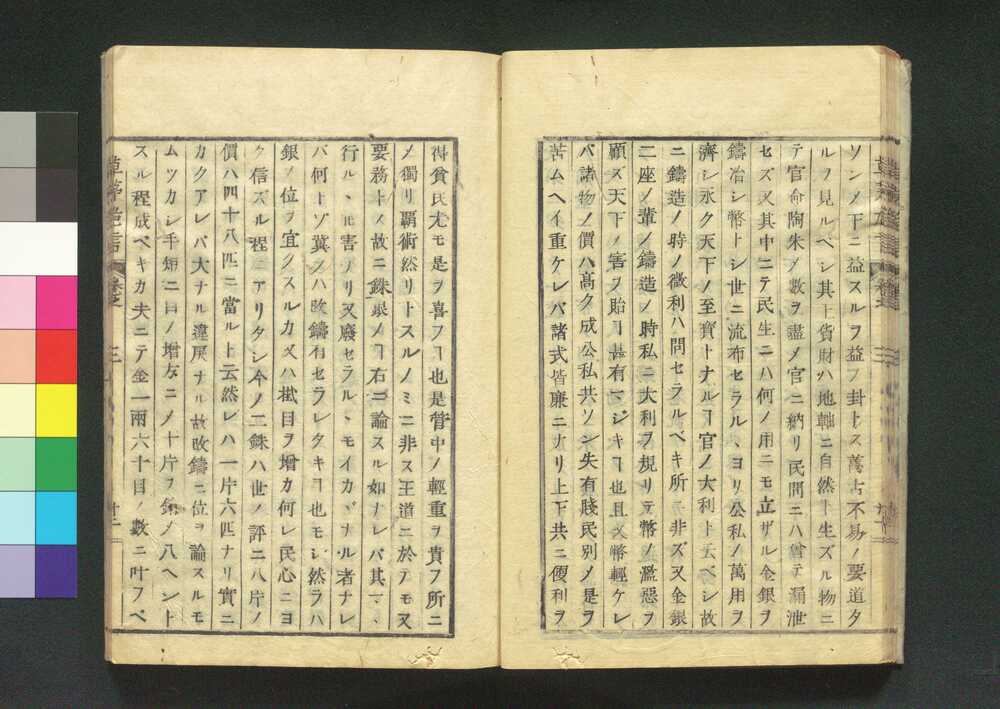 ソンメ下ニ益スルヲ益ノ卦トス萬古不易ノ要道タ
ルヿ見ルベシ其上貨財ハ地軸ニ自然ト生ズル物ニ
テ官命陶朱メ数ヲ盡メ官ニ納リ民間ニハ曾テ漏泄
セズ又其中ニテ民生ニハ何ノ用ニモ立ザル金銀ヲ
鑄冶シ幣トシ世ニ流布セラルヽヨリ公私ノ萬用ヲ
濟シ永ク天下ノ至寶トナルヿ官ノ大利ト云ベシ故
ニ鑄造ノ時ノ微利ハ問セラルベキ所ニ非ズ又金銀
二座ノ輩ノ鑄造ノ時私ニ大利ヲ規リテ幣ノ濫惡ヲ
顧ズ天下ノ害ヲ貽ヿ甚有マジキヿ也且又幣輕ケレ
バ諸物ノ價ハ高ク成公私共ソン失有賤民別メ是ヲ
苦ムヘイ重ケレバ諸式皆廉ニナリ上下共ニ便利ヲ
得貧氏尤モ是ヲ喜フヿ也是管中ノ輕重ヲ貴フ所ニ
メ獨リ覇術然リトスルノミニ非ス王道ニ於テモ又
要務トメ故ニ銖銀ノヿ右ニ論スル如ナレバ其マヽ
行ルヽハ害アリ又廢セラルヽモイカヾナル者ナレ
バ何トゾ冀クハ改鑄有セラレタキヿ也モシ然ラハ
銀ノ位ヲ宜クスルカ又ハ掛目ヲ增カ何レ民心ニヨ
ク信ズル程ニアリタシ今ノ二銖ハ世ノ評ニ八片ノ
價ハ四十八匹ニ當ルト云然レハ一片六匹ナリ實ニ
カクアレバ大ナル違戾ナル故改鑄ニ位ヲ論スルモ
ムツカシ手短ニ目ノ增方ニメ十片ヲ鎔メ八ヘント
スル程成ベキカ夫ニテ金一兩六十目ノ數ニ叶フベ
草茅危言